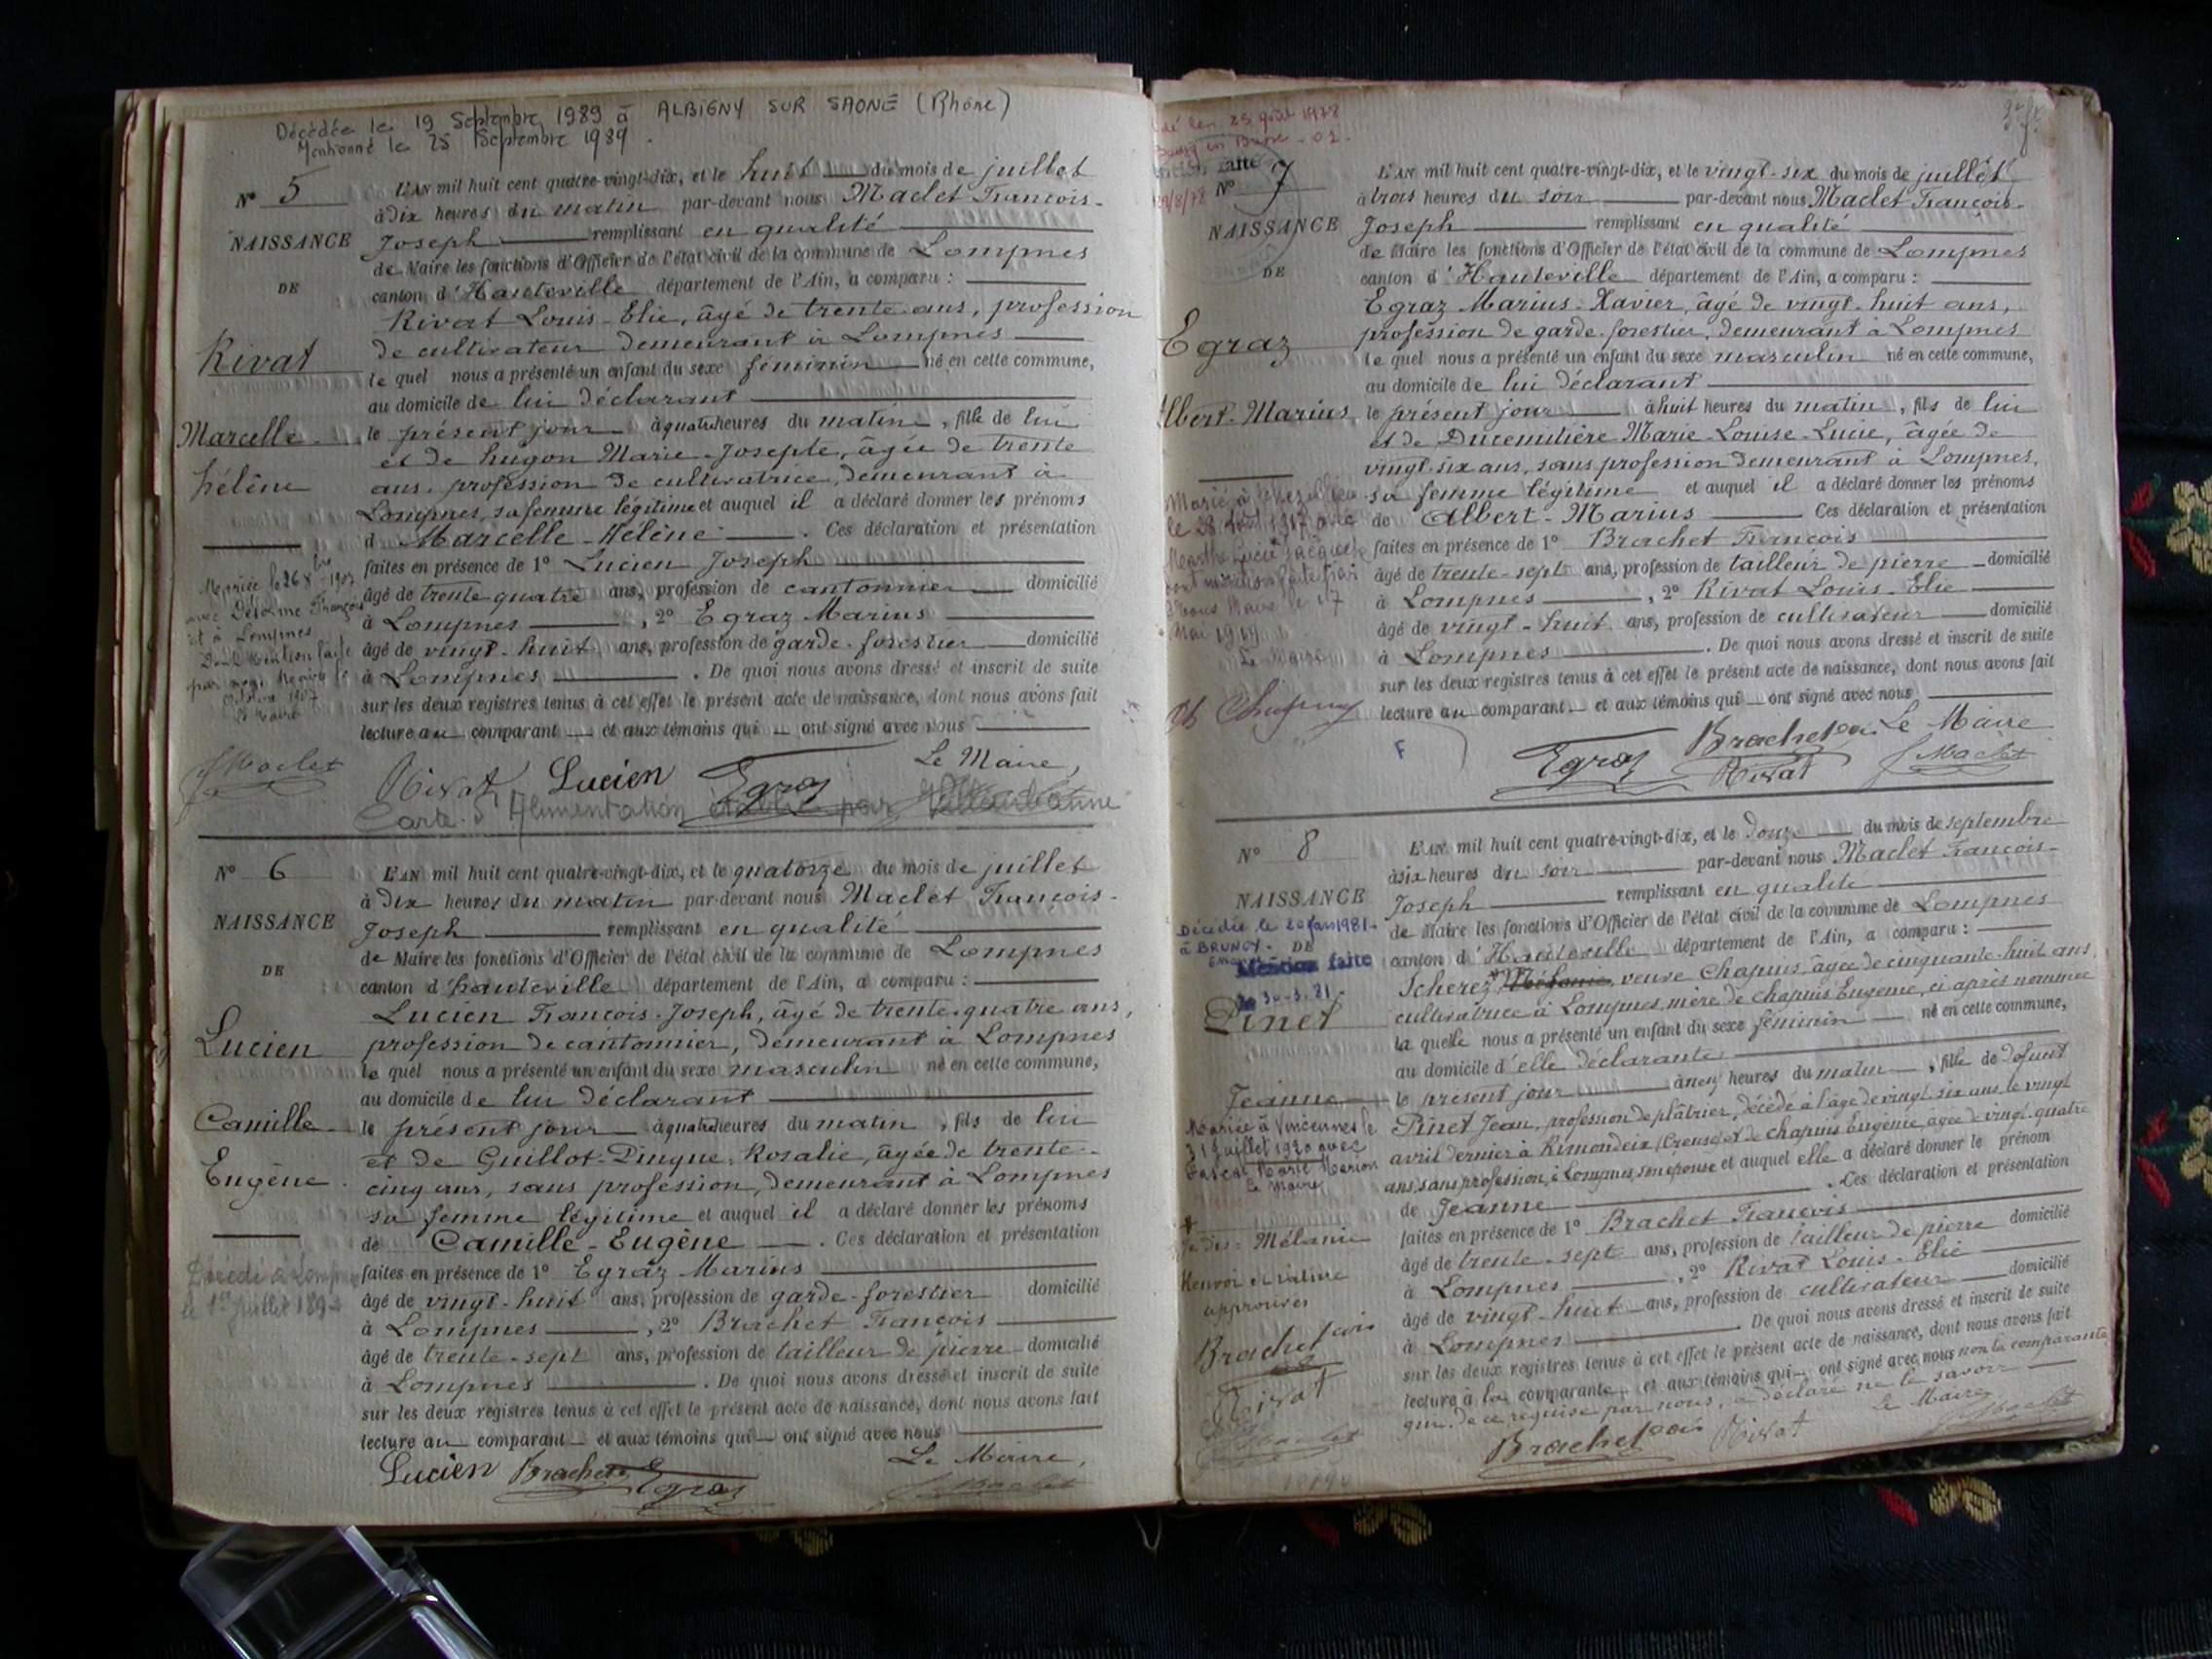 Décédée le 19 Septembre 1989 à ALBIGNY SUR SAONE (Rhône)
Mentionné le 25 Septembre 1989.
N° 5
NAISSANCE
DE
Rivat
Marcelle
hélène
L'AN mil huit cent quatre-vingt-dix, et le huit du mois de juillet
à dix heures du matin par-devant nous Maclet François-
Joseph remplissant en qualité
de Maire les fonctions d'Officier de l'état civil de la commune de Lompnes
canton d'Hauteville département de l'Ain, a comparu :
Rivat Louis-Elie, âgé de trente ans, profession
de cultivateur demeurant à Lompnes
le quel nous a présenté un enfant du sexe féminin né en cette commune,
au domicile de lui déclarant
le présent jour à quatre heures du matin, fille de lui
et de hugon Marie-Josepte, âgée de trente
ans, profession de cultivatrice, demeurant à
Lompnes, sa femme légitime et auquel il a déclaré donner les prénoms
d Marcelle-Hélène. Ces déclaration et présentation
faites en présence de 1° Lucien Joseph
âgé de trente quatre ans, profession de cantonnier domicilié
à Lompnes, 2° Egraz Marius
âgé de vingt-huit ans, profession de garde-forestier domicilié
à Lompnes. De quoi nous avons dressé et inscrit de suite
sur les deux registres tenus à cet effet le présent acte de naissance, dont nous avons fait
lecture au comparant et aux témoins qui ont signé avec nous
Mariée le 26 Xbre 1907
avec Delorme François
et à Lompnes
Dont Mention faite
par nous Maire le
Octobre 1907
Le Maire
Maclet
Rivat Lucien Egraz Le Maire,
Carte d'Alimentation établie par Villeurbanne
N° 6
NAISSANCE
DE
Lucien
Camille
Eugène
L'AN mil huit cent quatre-vingt-dix, et le quatorze du mois de juillet
à dix heures du matin par-devant nous Maclet François-
Joseph remplissant en qualité
de Maire les fonctions d'Officier de l'état civil de la commune de Lompnes
canton d'hauteville département de l'Ain, a comparu :
Lucien François-Joseph, âgé de trente quatre ans,
profession de cantonnier, demeurant à Lompnes
le quel nous a présenté un enfant du sexe masculin né en cette commune,
au domicile de lui déclarant
le présent jour à quatre heures du matin, fils de lui
et de Guillot-Pingue Rosalie, âgée de trente-
cinq ans, sans profession, demeurant à Lompnes
sa femme légitime et auquel il a déclaré donner les prénoms
de Camille-Eugène. Ces déclaration et présentation
faites en présence de 1° Egraz Marius
âgé de vingt-huit ans, profession de garde-forestier domicilié
à Lompnes, 2° Brachet François
âgé de trente-sept ans, profession de tailleur de pierre domicilié
à Lompnes. De quoi nous avons dressé et inscrit de suite
sur les deux registres tenus à cet effet le présent acte de naissance, dont nous avons fait
lecture au comparant et aux témoins qui ont signé avec nous
Décédé à Lompnes
le 1er Juillet 189
Lucien Brachet Egraz Le Maire,
Maclet
25 août 1978
Bourg en Bresse - 01
faite
29/8/78
N° 7
NAISSANCE
DE
Egraz
Albert-Marius
L'AN mil huit cent quatre-vingt-dix, et le vingt-six du mois de juillet
à trois heures du soir par-devant nous Maclet François-
Joseph remplissant en qualité
de Maire les fonctions d'Officier de l'état civil de la commune de Lompnes
canton d'Hauteville département de l'Ain, a comparu :
Egraz Marius-Xavier, âgé de vingt-huit ans,
profession de garde-forestier, demeurant à Lompnes
le quel nous a présenté un enfant du sexe masculin né en cette commune,
au domicile de lui déclarant
le présent jour à huit heures du matin, fils de lui
et de Ducemitière Marie-Louise-Lucie, âgée de
vingt-six ans, sans profession demeurant à Lompnes,
sa femme légitime et auquel il a déclaré donner les prénoms
de Albert-Marius Ces déclaration et présentation
faites en présence de 1° Brachet François
âgé de trente-sept ans, profession de tailleur de pierre domicilié
à Lompnes, 2° Rivat Louis-Elie
âgé de vingt-huit ans, profession de cultivateur domicilié
à Lompnes. De quoi nous avons dressé et inscrit de suite
sur les deux registres tenus à cet effet le présent acte de naissance, dont nous avons fait
lecture au comparant et aux témoins qui ont signé avec nous
Marié à
le 28 Août 1917 avec
Marthe Lucie
dont mention faite par
Nous Maire le 17
Mai 1919
Le Maire
F
Egraz Brachet Rivat Le Maire
Maclet
N° 8
NAISSANCE
DE
Décédée le 20 1981
à BRUNOY
Mention faite
le 30-3-81
Pinet
Jeanne
L'AN mil huit cent quatre-vingt-dix, et le douze du mois de septembre
à six heures du soir par-devant nous Maclet François-
Joseph remplissant en qualité
de Maire les fonctions d'Officier de l'état civil de la commune de Lompnes
canton d'Hauteville département de l'Ain, a comparu :
Scherez Mélanie, veuve Chapuis, âgée de cinquante-huit ans,
cultivatrice à Lompnes, mère de chapuis Eugénie, ci après nommée
la quelle nous a présenté un enfant du sexe féminin né en cette commune,
au domicile d'elle déclarante
le présent jour à neuf heures du matin, fille de défunt
Pinet Jean, profession de plâtrier, décédé à l'âge de vingt-six ans, le vingt
avril dernier à Rimondeix (Creuse) et de chapuis Eugénie, âgée de vingt-quatre
ans, sans profession, à Lompnes, son épouse et auquel elle a déclaré donner le prénom
de Jeanne. Ces déclaration et présentation
faites en présence de 1° Brachet François
âgé de trente-sept ans, profession de tailleur de pierre domicilié
à Lompnes, 2° Rivat Louis-Elie
âgé de vingt-huit ans, profession de cultivateur domicilié
à Lompnes. De quoi nous avons dressé et inscrit de suite
sur les deux registres tenus à cet effet le présent acte de naissance, dont nous avons fait
lecture à la comparante et aux témoins qui ont signé avec nous non la comparante
qui, de ce requise par nous, a déclaré ne le savoir
Mariée à Vincennes le
31 Juillet 1920 avec
Pascal Marie Marion
Le Maire
Mélanie
Renvoi et rature
approuvés
Brachet
Rivat
Maclet
Brachet Rivat Le Maire
Maclet